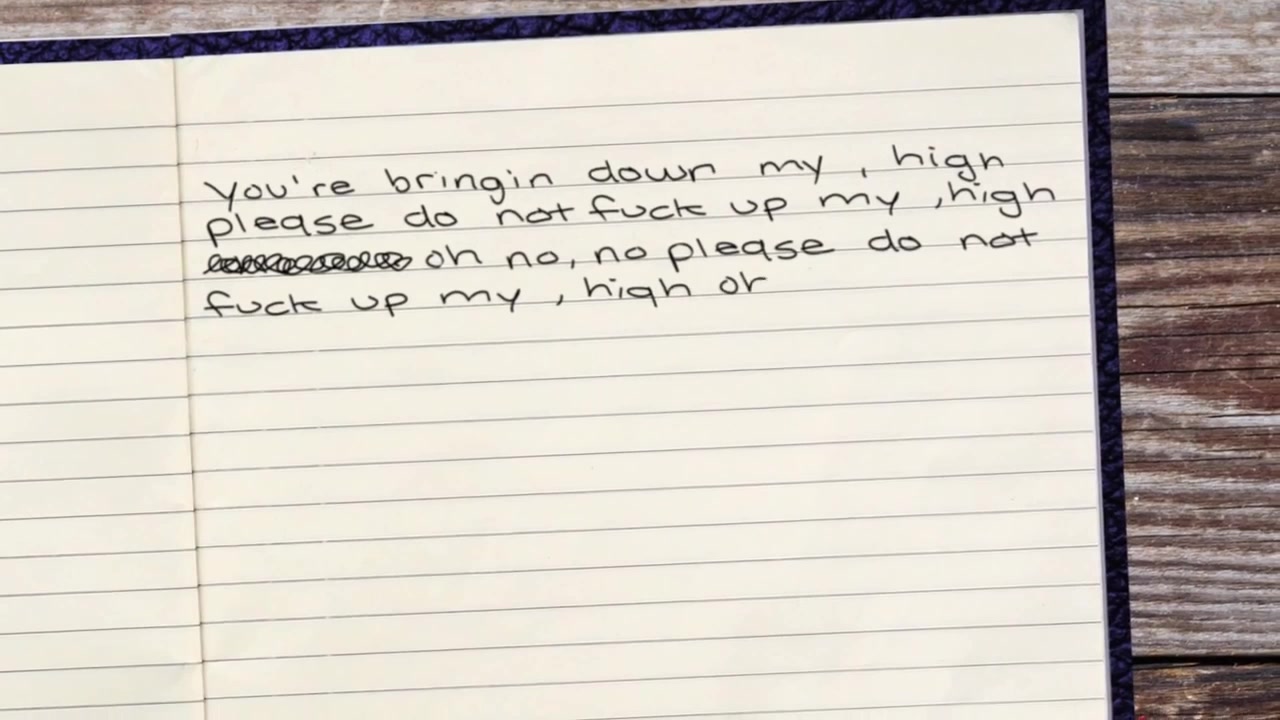 You're bringin down my , high
please do not fuck up my , high
oh no, no please do not
fuck up my , high or